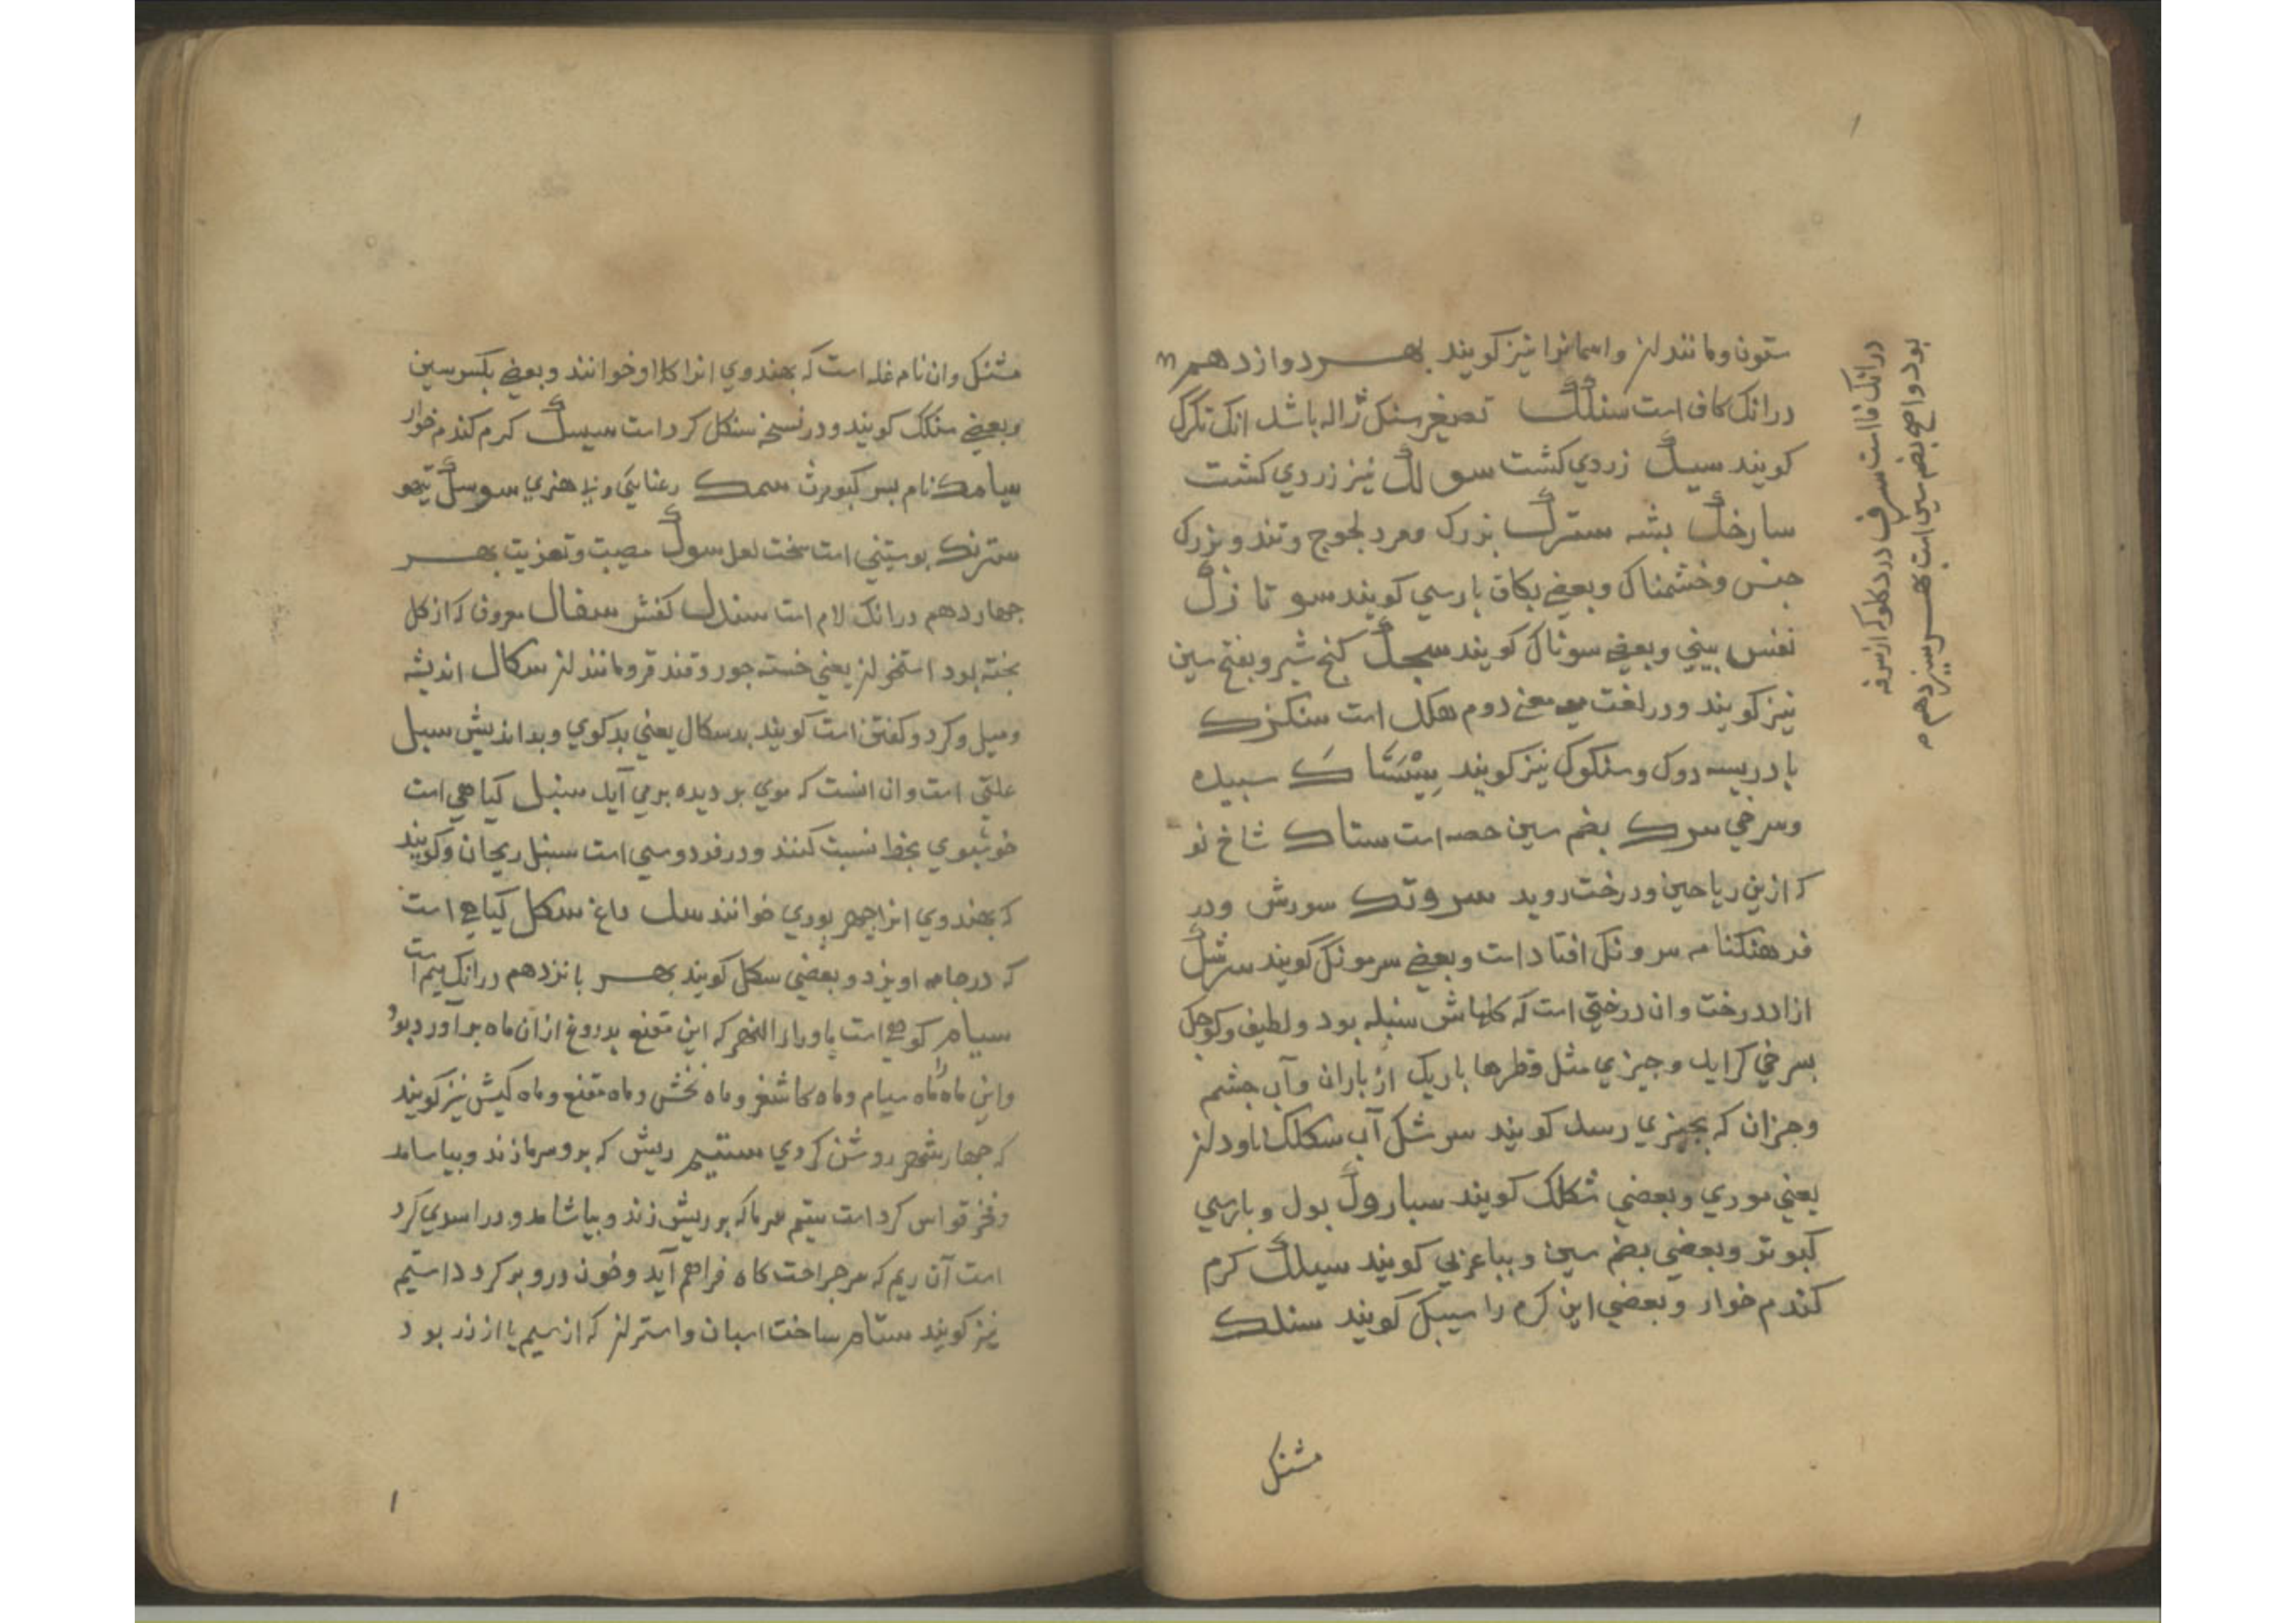 ستون و مانند لز و اسمانرا نیز کویند بهر دوازدهم
درانک کاف است سنگک تصغیر سنک ژاله باشد انک تکرک
کویند سیک زردی کشت سو لک نیز زردی کشت
سارخک بشه سترک بزرک و مرد لجوج و تند و بزرک
جنس و خشمناک و بعضی بکاف بارسی کویند سو تا زک
نفس بینی و بعضی سوناک کویند سجک کنج شیر و بفتح سین
نیز کویند و در لغت معنی دوم هکک است سنکزک
بادریسه دوک و سنکوک نیز کویند سبیده
و سرخی سرک بضم سین حصه است ستاک شاخ نو
که ازین ریاحین و درخت روید سروتک سورش و در
فرهنکنامه سرونک افتاد است و بعضی سرمونک کویند سرشک
ازاد درخت و ان درختی است که کلهاش سنبله بود و لطیف و کوچک
بسرخی کراید و جیزی مثل قطرها باریک از باران و آب جشم
و جزان که بجیزی رسد کویند سرشک آب سکلک ناودلز
یعنی موری و بعضی شکلک کویند سباروک بول و بارسی
کبوتر و بعضی بضم سین و بباء عزبی کویند سیلک کرم
کندم خوار و بعضی این کرم را سیبک کویند سنلک
مشنک
درانک فا است سرف درد کلو که از سرفه
بود و اصح بضم سین است بهر سیزدهم
مشنک و ان نام غله است که بهندوی انرا کلاو خوانند و بعضی بکسر سین
و بعضی سنکک کویند و در نسخه سنکل کرد است سیسک کرم کندم خوار
سیامک نام بسر کیومرث سمک رعنایی و بی هنری سوسک تیهو
سترنک بوستینی است سخت لعل سوک مصیبت و تعزیت بهر
جهاردهم درانک لام است سندل کفش سفال معروف که از کل
بخته بود استخولز یعنی خسته جوز و فندق و مانند لز سکال اندیشه
و میل و کرد و کفتن است کویند بدسکال یعنی بدکوی و بداندیش سبل
علتی است و ان انست که موی بر دیده برمی آید سنبل کیاهی است
خوشبوی بخط نسبت کنند و در فردوسی است سنبل ریحان و کویند
که بهندوی انرا جهر بوری خوانند سل داغ سکل کیاهی است
که در جامه اویزد و بعضی سکل کویند بهر بانزدهم درانک میم است
سیام کوهی است بماوراء النهر که ابن مقنع بدروغ ازان ماه برآورد بود
و این ماه را ماه سیام و ماه کاشغر و ماه نخشب و ماه مقنع و ماه کیش نیز کویند
که جهار شهر روشن کردی ستیم ریش که برو سرما زند و بیاسامد
و فخر قواس کرد است ستیم سرما که بر ریش زند و بیاشامد و در اسدی کرد
است آن ریم که سر جراحت کاه فراهم آید و خون درو بر کردد استیم
نیز کویند ستام ساخت اسبان و استرلز که از سیم یا از زر بود